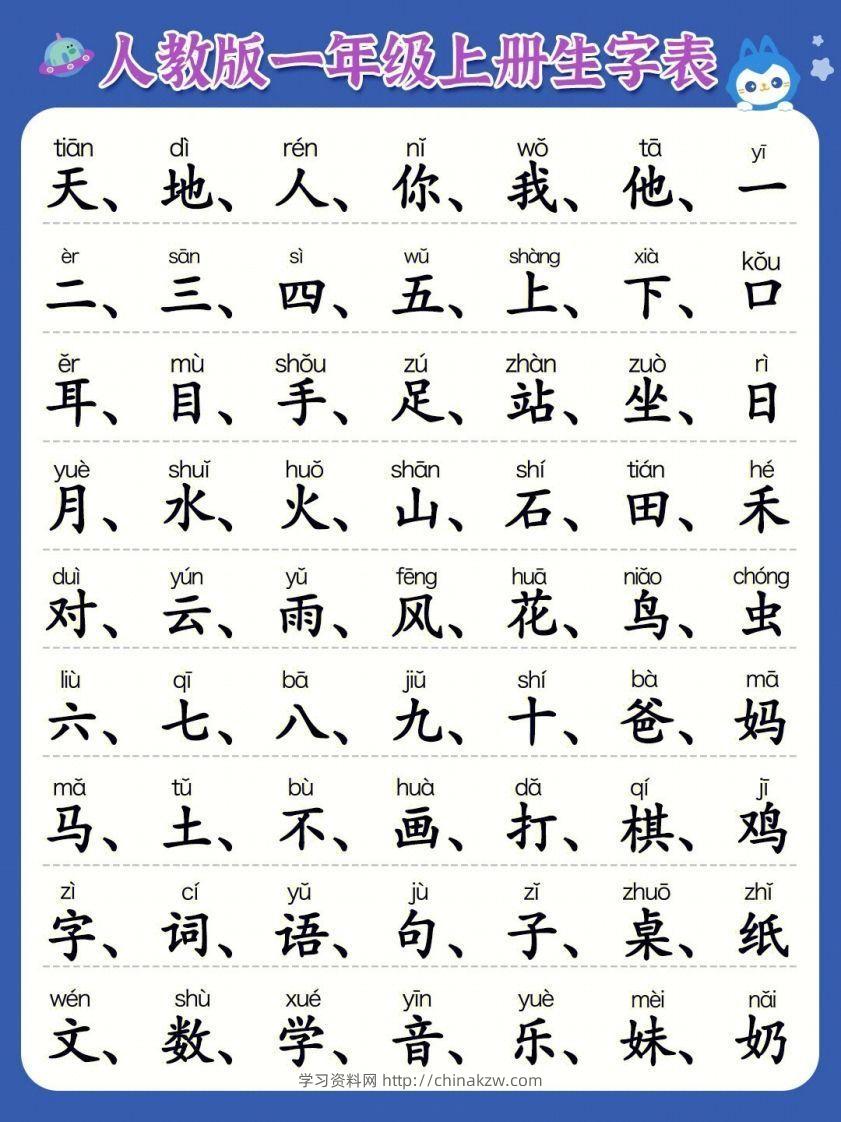 人教版一年级上册生字表
tiān dì rén nǐ wǒ tā yī
天、地、人、你、我、他、一
èr sān sì wǔ shàng xià kǒu
二、三、四、五、上、下、口
ěr mù shǒu zú zhàn zuò rì
耳、目、手、足、站、坐、日
yuè shuǐ huǒ shān shí tián hé
月、水、火、山、石、田、禾
duì yún yǔ fēng huā niǎo chóng
对、云、雨、风、花、鸟、虫
liù qī bā jiǔ shí bà mā
六、七、八、九、十、爸、妈
mǎ tǔ bù huà dǎ qí jī
马、土、不、画、打、棋、鸡
zì cí yǔ jù zǐ zhuō zhǐ
字、词、语、句、子、桌、纸
wén shù xué yīn yuè mèi nǎi
文、数、学、音、乐、妹、奶
学习资料网 http://chinakzw.com